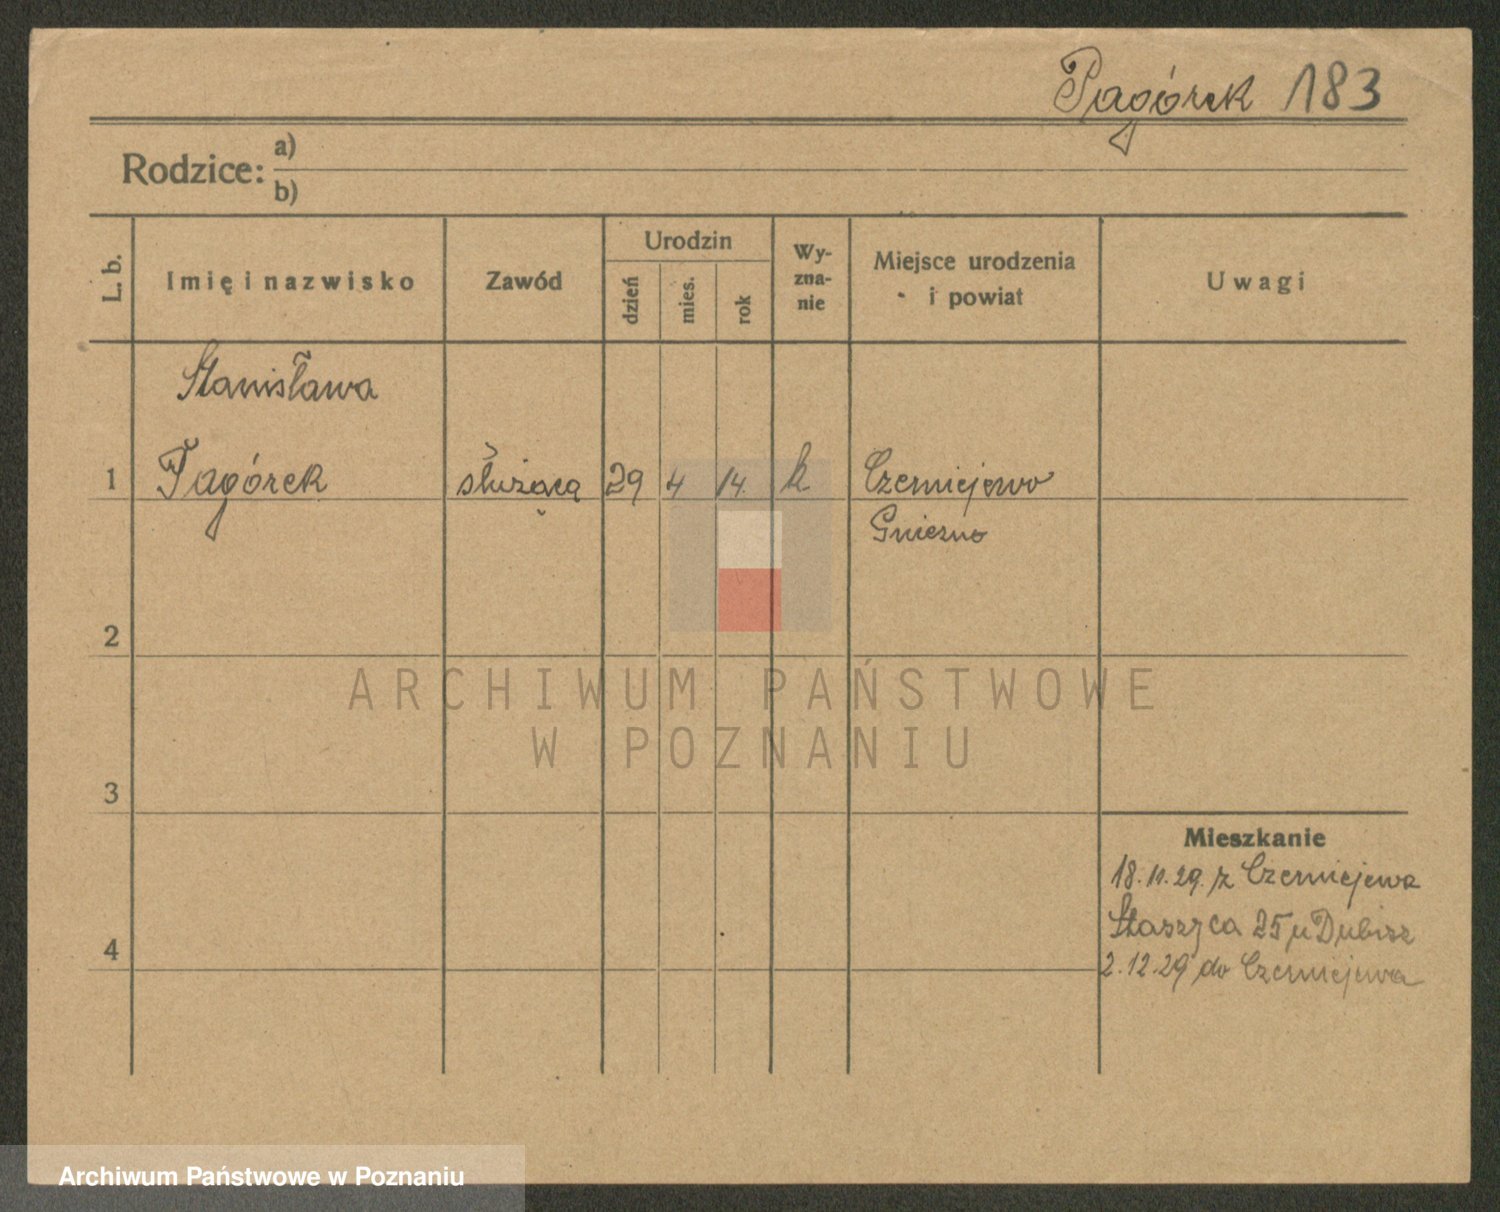 Pagórek 183
Rodzice: a)
b)
L. b.
Imię i nazwisko
Zawód
Urodzin
dzień
mies.
rok
Wy-
zna-
nie
Miejsce urodzenia
i powiat
Uwagi
Stanisława
1 Pagórek służąca 29 4 14. k Czerniejewo
Gniezno
2
3
4
Mieszkanie
18.11.29. z Czerniejewa
Staszyca 25 u Dubisz
2.12.29 do Czerniejewa
ARCHIWUM PAŃSTWOWE
W POZNANIU
Archiwum Państwowe w Poznaniu